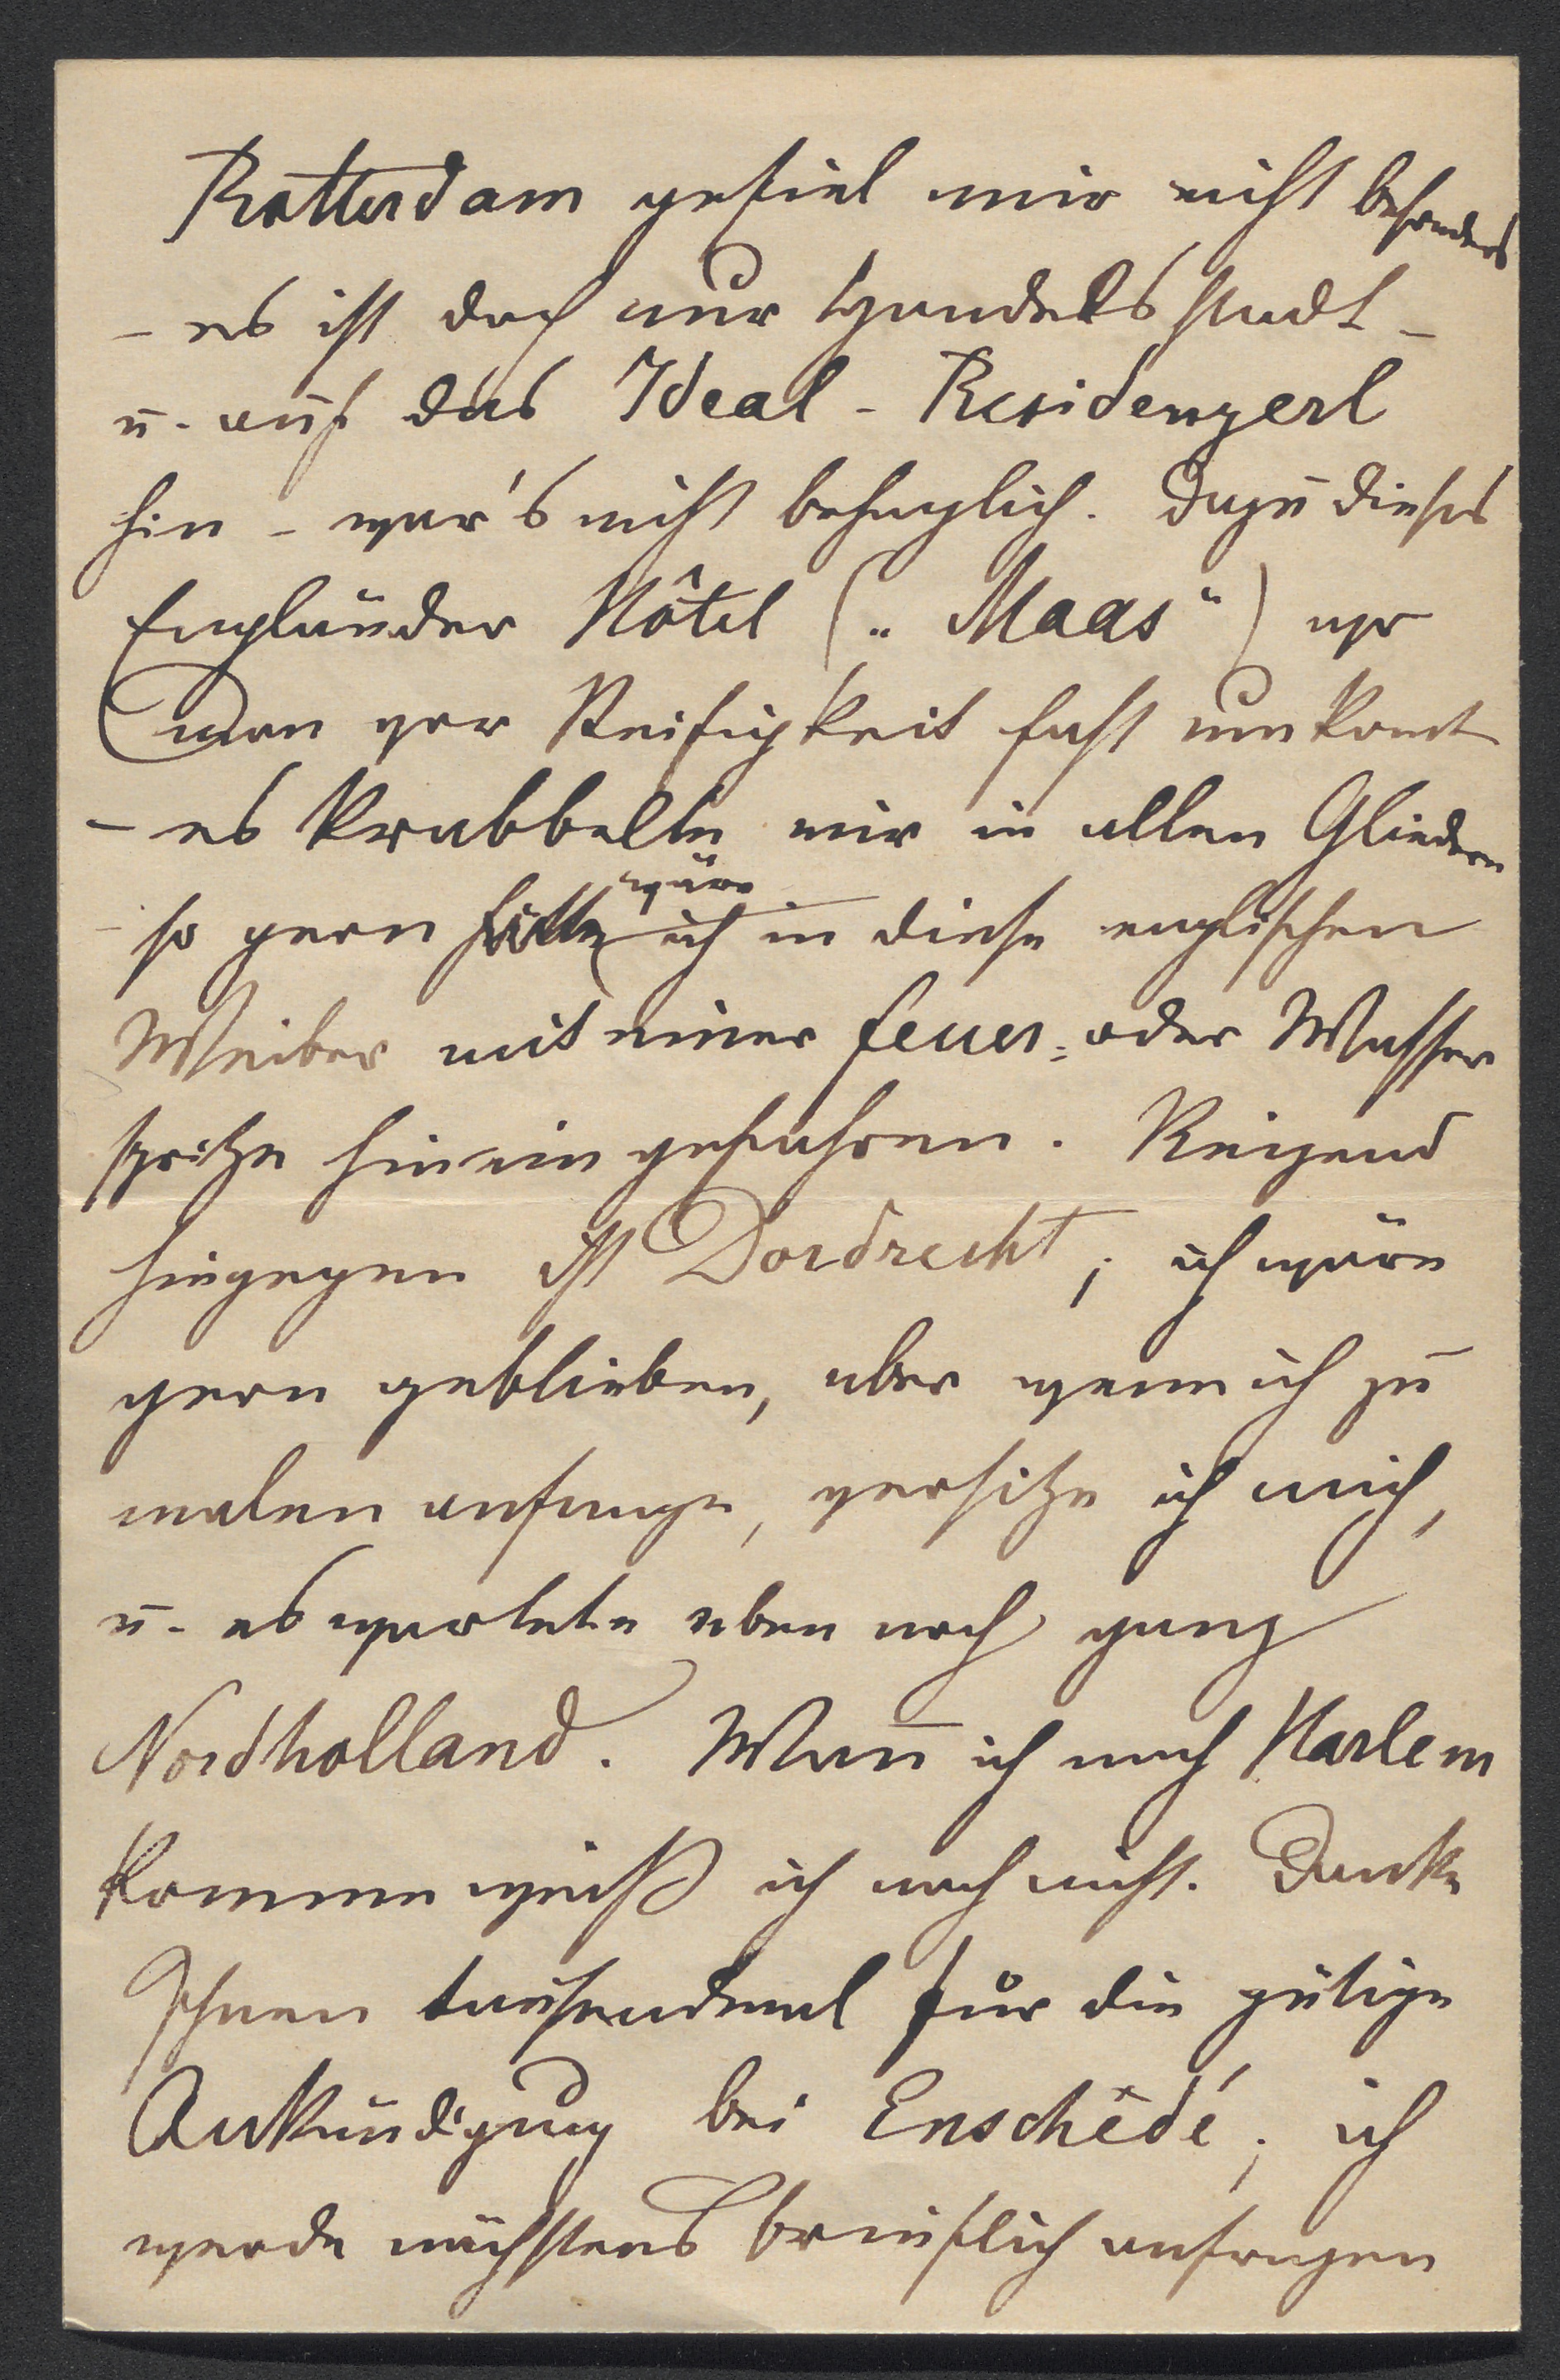 Rotterdam gefiel mir nicht besonders
– es ist doch nur Handelsstadt –
u. auf das Ideal - Residenzerl
hin – war's nicht behaglich. Dazu dieses
Engländer Hôtel („Maas“) wo
man vor Steifigkeit fast umkomt
– es krabbelte mir in allen Gliedern
– so gern hätte wäre ich in diese englischen
Weiber mit einer Feuer= oder Wasser
spritze hineingefahren. Reizend
hingegen ist Dordrecht; ich wäre
gern geblieben, aber wenn ich zu
malen anfange, versitze ich mich,
u. es wartete eben noch ganz
Nordholland. Wann ich nach Harlem
komme weiß ich noch nicht. Danke
Ihnen tausendmal für die gütige
Ankündigung bei Enschédé; ich
werde nächstens brieflich anfragen